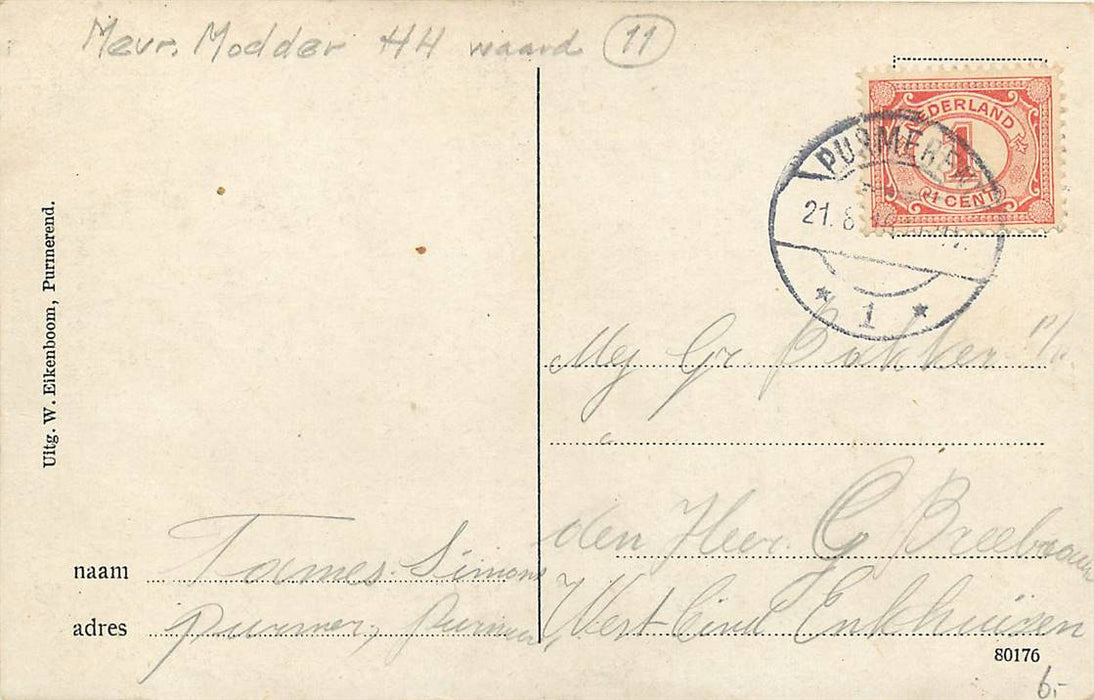 Mevr. Modder HH waard 11
NEDERLAND
1
1 CENT
PURMEREND
21.8
1
Uitg. W. Eikenboom, Purmerend.
Mej Gr Bakker p/a
den Heer G Breebaart
West Eind Enkhuisen
naam Tames Simons
adres Purmer, Purmer
80176
6,-